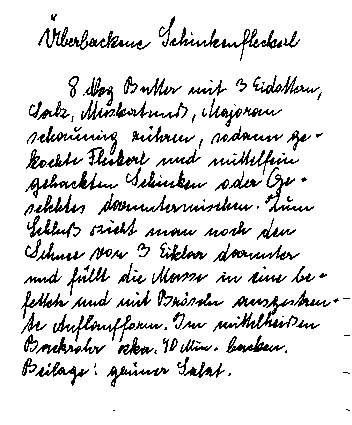 Überbackene Schinkenfleckerl
8 dkg Butter mit 3 Eidottern,
Salz, Muskatnuß, Majoran
schaumig rühren, sodann ge-
kochte Fleckerl und mittelfein
gehackten Schinken oder Ge-
selchtes daruntermischen. Zum
Schluß zieht man noch den
Schnee von 3 Eiklar darunter
und füllt die Masse in eine be-
fettete und mit Bröseln ausgestreu-
te Auflaufform. Im mittelheißen
Backrohr zka. 40 Min. backen.
Beilage: grüner Salat.